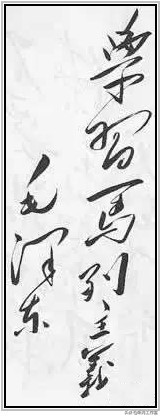 學習馬列主義
毛澤东